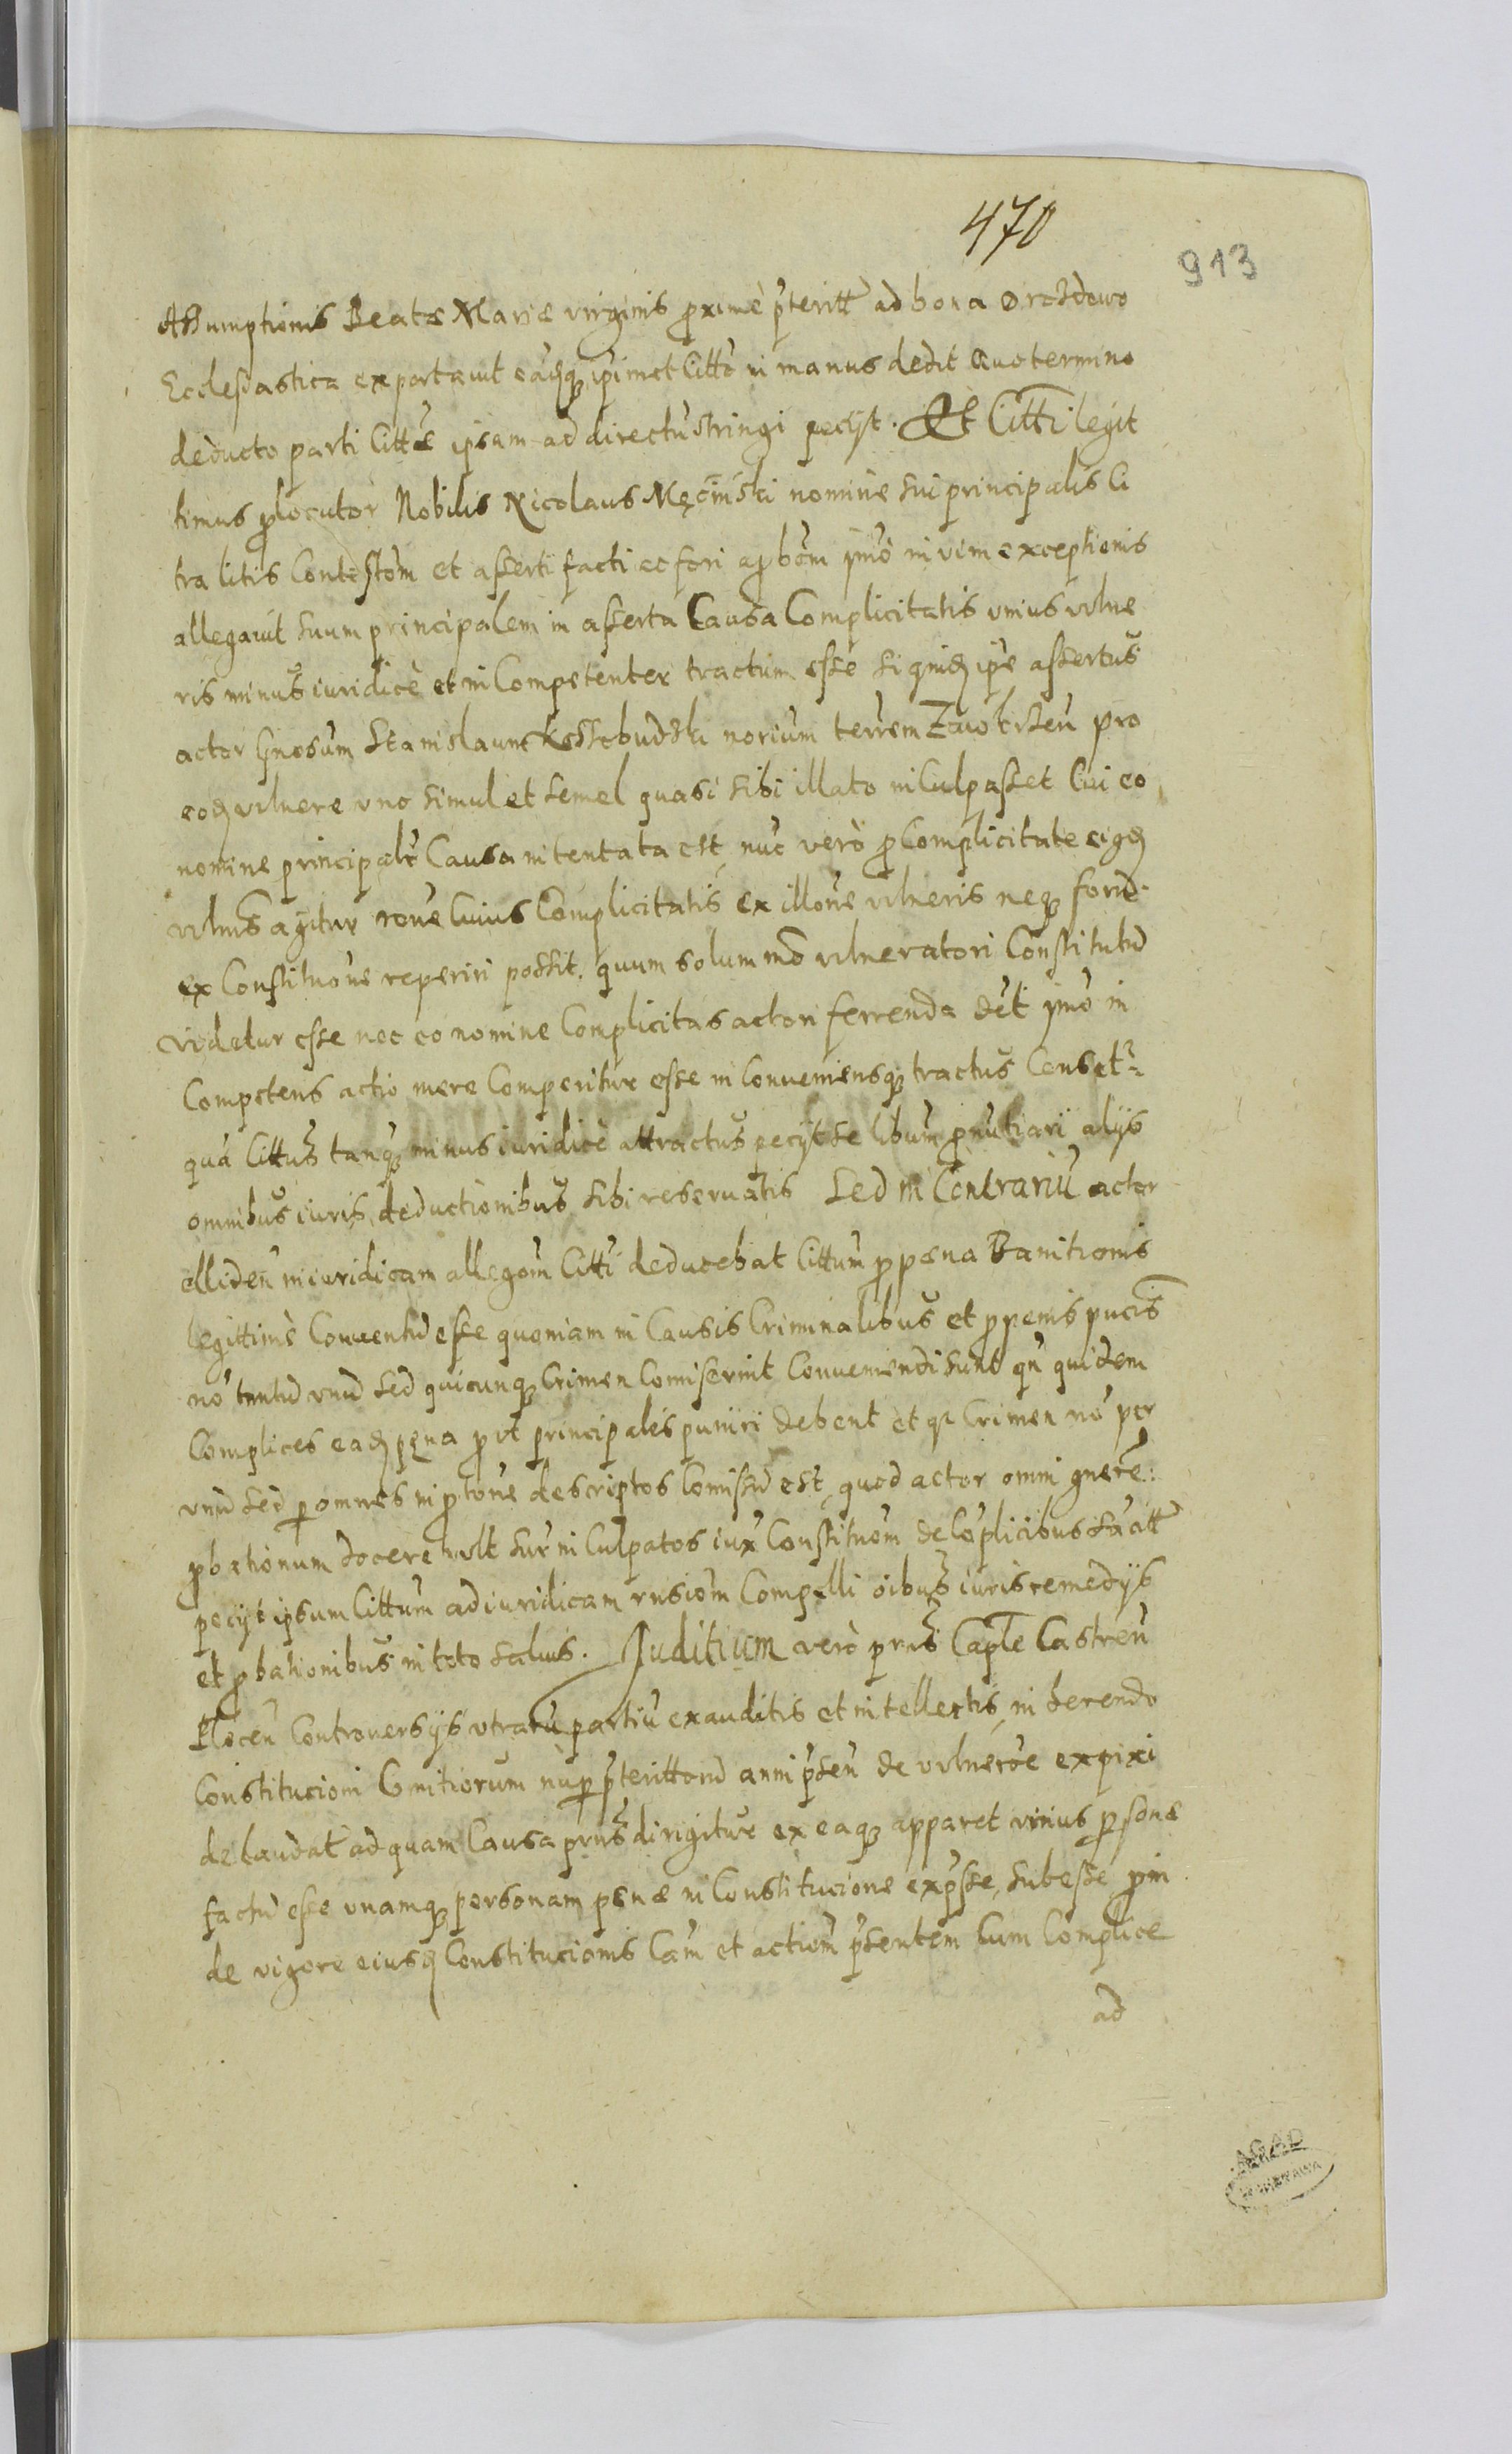 470
913
Assumptionis Beatæ Mariæ virginis proxime pteritt ad bona Drozdowo
Ecclesiastica exportavit eadq ipimet Citto in manus dedit Quo termino
deducto parti Cittæ ipsam ad directu stringi petyt. Et Citti legit
timus plocutor Nobilis Nicolaus Męciński nomine sui principalis Ci
tra litis Contestom et asserti facti ac fori apbom ymo in vim exceptionis
allegavit suum principalem in asserta Causa Complicitatis unius vulne
ris minus iuridice et in Competenter tractum esse siquid ipse assertus
actor Gnosum Stanislaum Kossobudzki norium terrem Zawkrzen pro
eod vulnere uno simul et semel quasi sibi illato in Culpasset Cui eo
nomine principalr Causa intentata est, nuc vero p Complicitate eigd
vulnis agitur rone Cuius Complicitatis ex illone vulneris neq foru
ex Constitutione reperiri possit. quum solum mo vulneratori Constitutu
videtur esse nec eo nomine Complicitas actori ferrenda det ymo in
Competens actio mere Comperitur esse in Conveniensq tractus Censetr
qua Cittus tanq minus iuridice attractus petyt se libum pnutiari alys
omnibus iuris deductionibus sibi reservatis Sed in Contrariu actor
elliden in iuridicam allegom Citti deducebat Cittum p pæna Banitionis
legittime Conventu esse quoniam in Causis Criminalibus et p penis pucis
no tantu unu sed quicunq Crimen Comiserint Conveniendi sunt qn quidem
Complices ead pęna prut principales puniri debent et qr Crimen no per
unu sed p omnes in ptone descriptos Comissu est, quod actor omni gnere:
pbationum docere vult sur in Culpatos iux Constituom de Coplicibus sa att
petyt ipsum Cittum ad iuridicam rnsiom Compelli oibus iuris remedys
et pbationibus in toto salvis. Juditium vero pns Caple Castren
Plocen Controversys utraru partiu exauditis et intellectis, in herendo
Constitucioni Comitiorum nup pterittoru anni psen de vulnere expixi
de laudat ad quam Causa pns dirigitur ex eaq apparet unius psonæ
factu esse unamq personam penæ in Constitucione expsse, subesse pin
de vigore eiusd Constitucionis Cam et actiom psentem Cum Complice
ad
AGAD
WARSZAWA